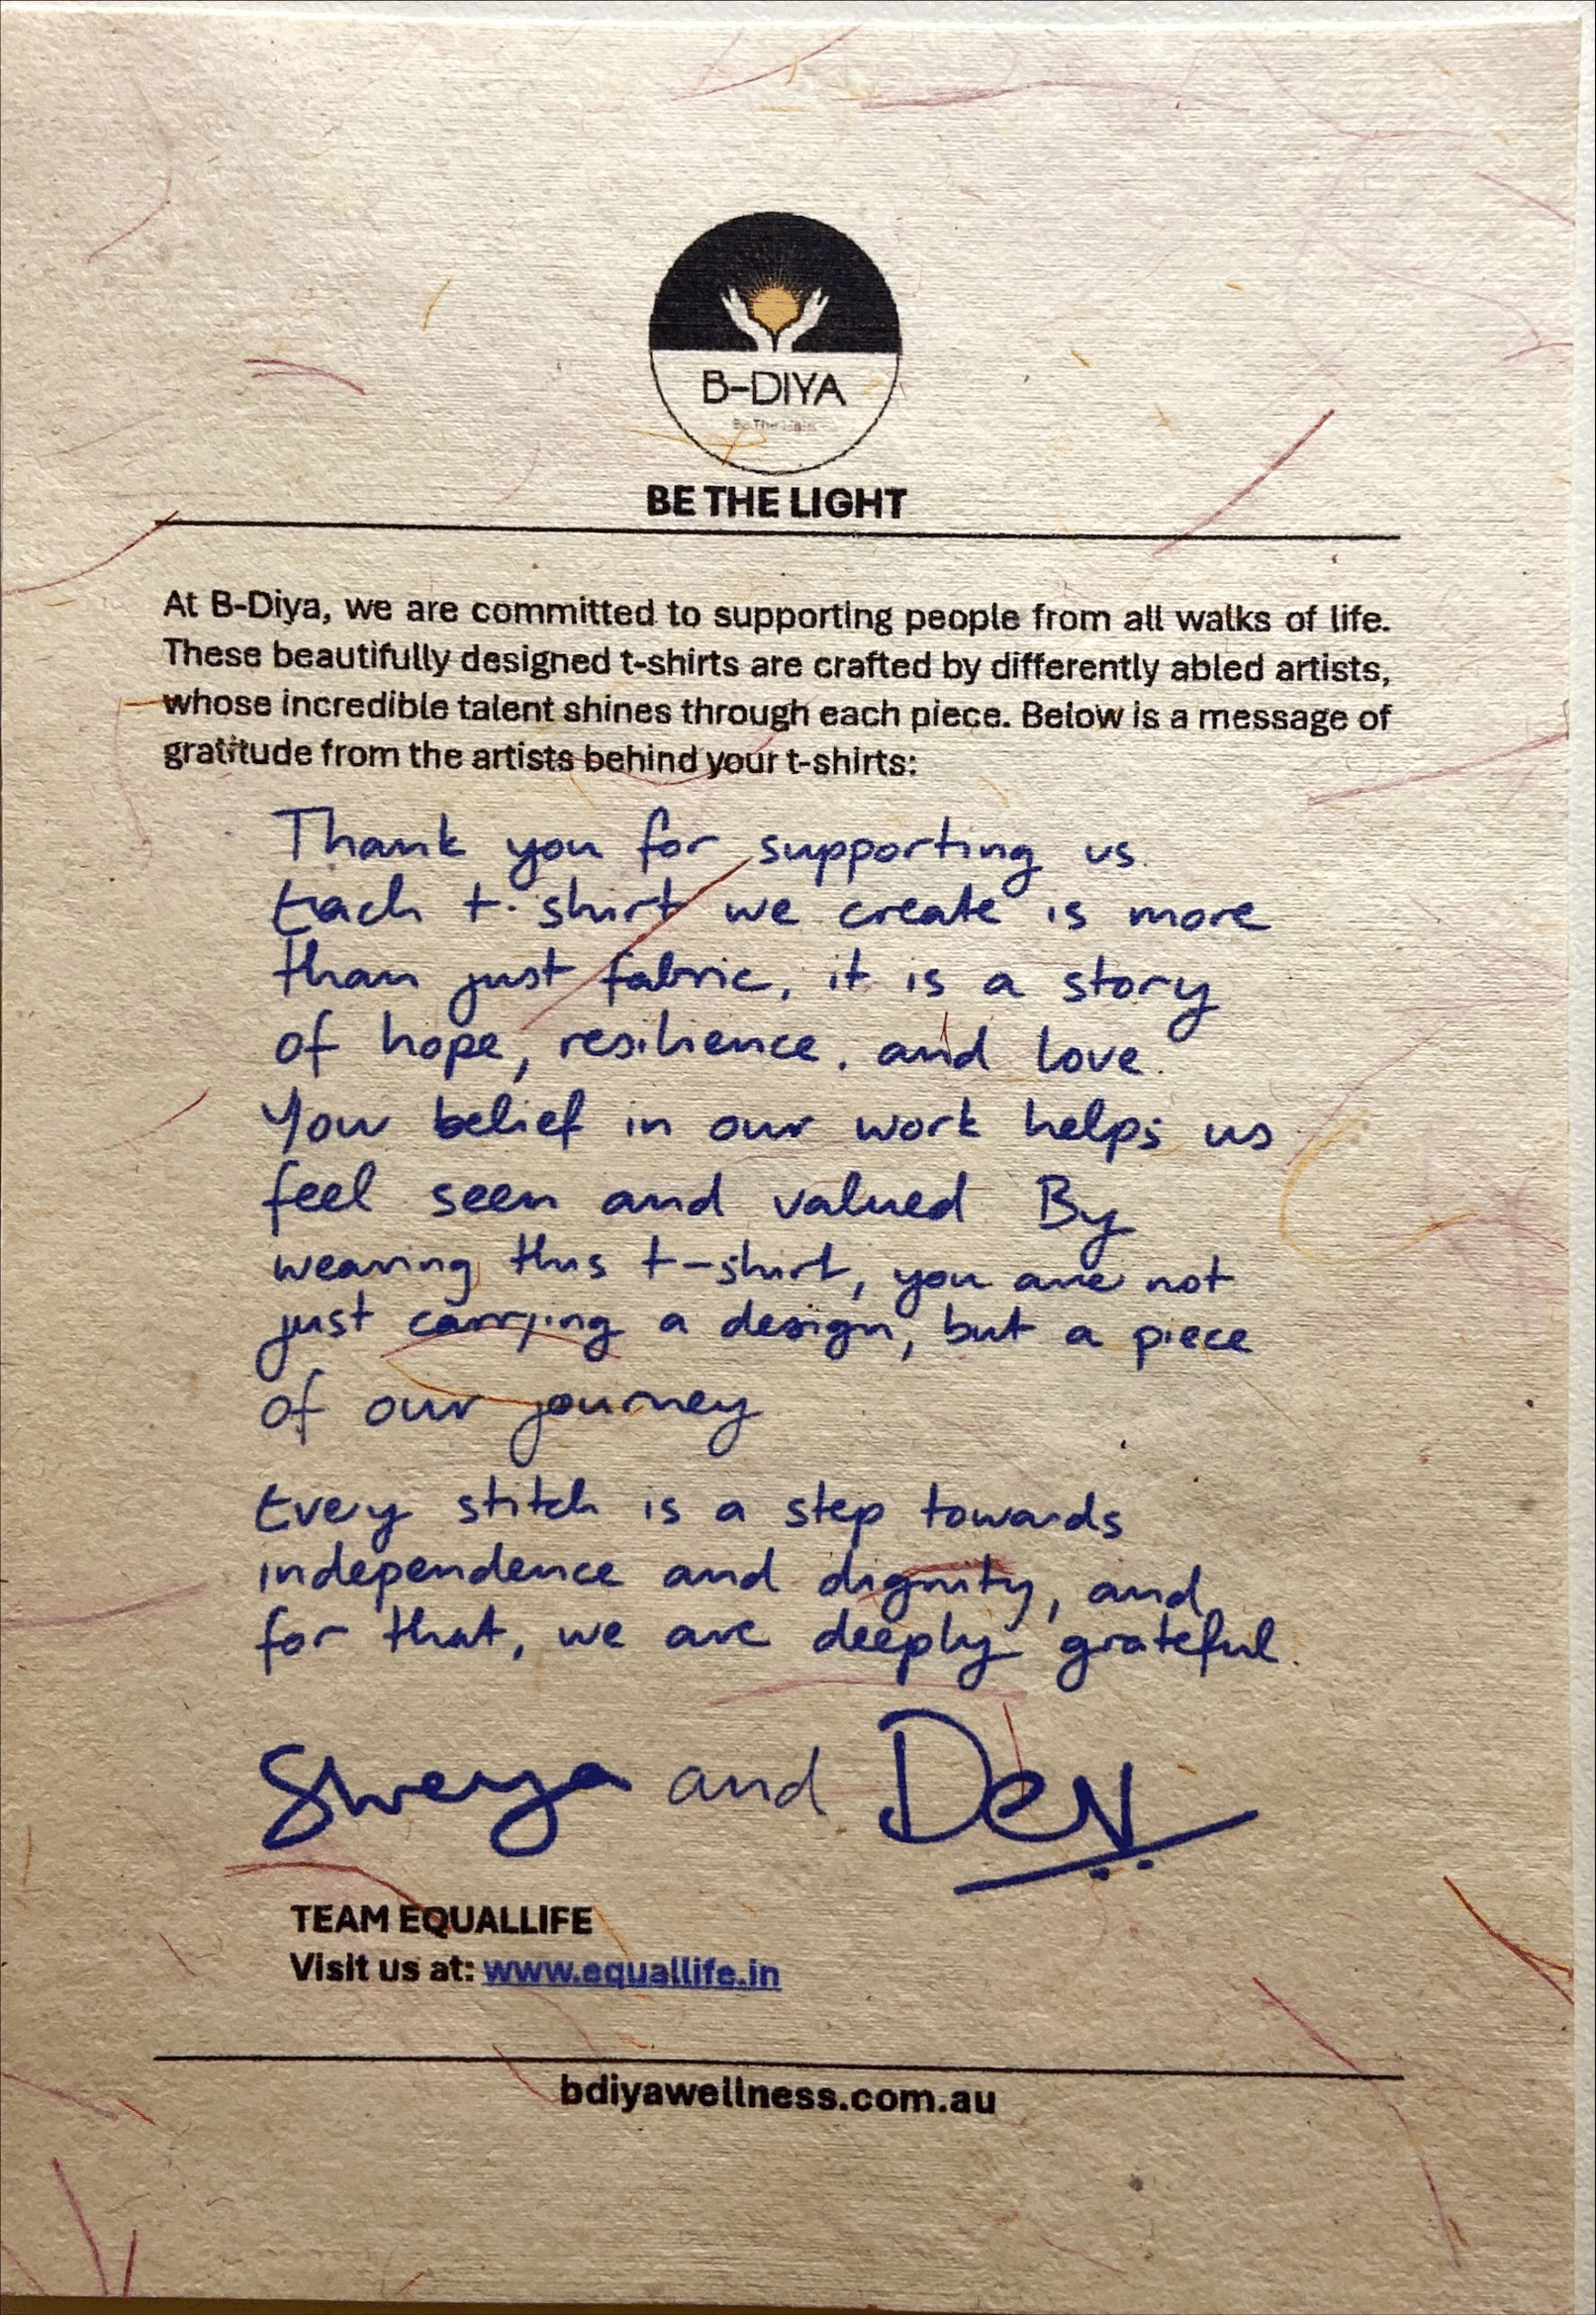 B-DIYA
Be The Light
BE THE LIGHT
At B-Diya, we are committed to supporting people from all walks of life.
These beautifully designed t-shirts are crafted by differently abled artists,
whose incredible talent shines through each piece. Below is a message of
gratitude from the artists behind your t-shirts:
Thank you for supporting us.
Each t-shirt we create is more
than just fabric, it is a story
of hope, resilience, and love.
Your belief in our work helps us
feel seen and valued. By
wearing this t-shirt, you are not
just carrying a design, but a piece
of our journey
Every stitch is a step towards
independence and dignity, and
for that, we are deeply grateful.
Shreya and Dev
TEAM EQUALLIFE
Visit us at: www.equallife.in
bdiyawellness.com.au